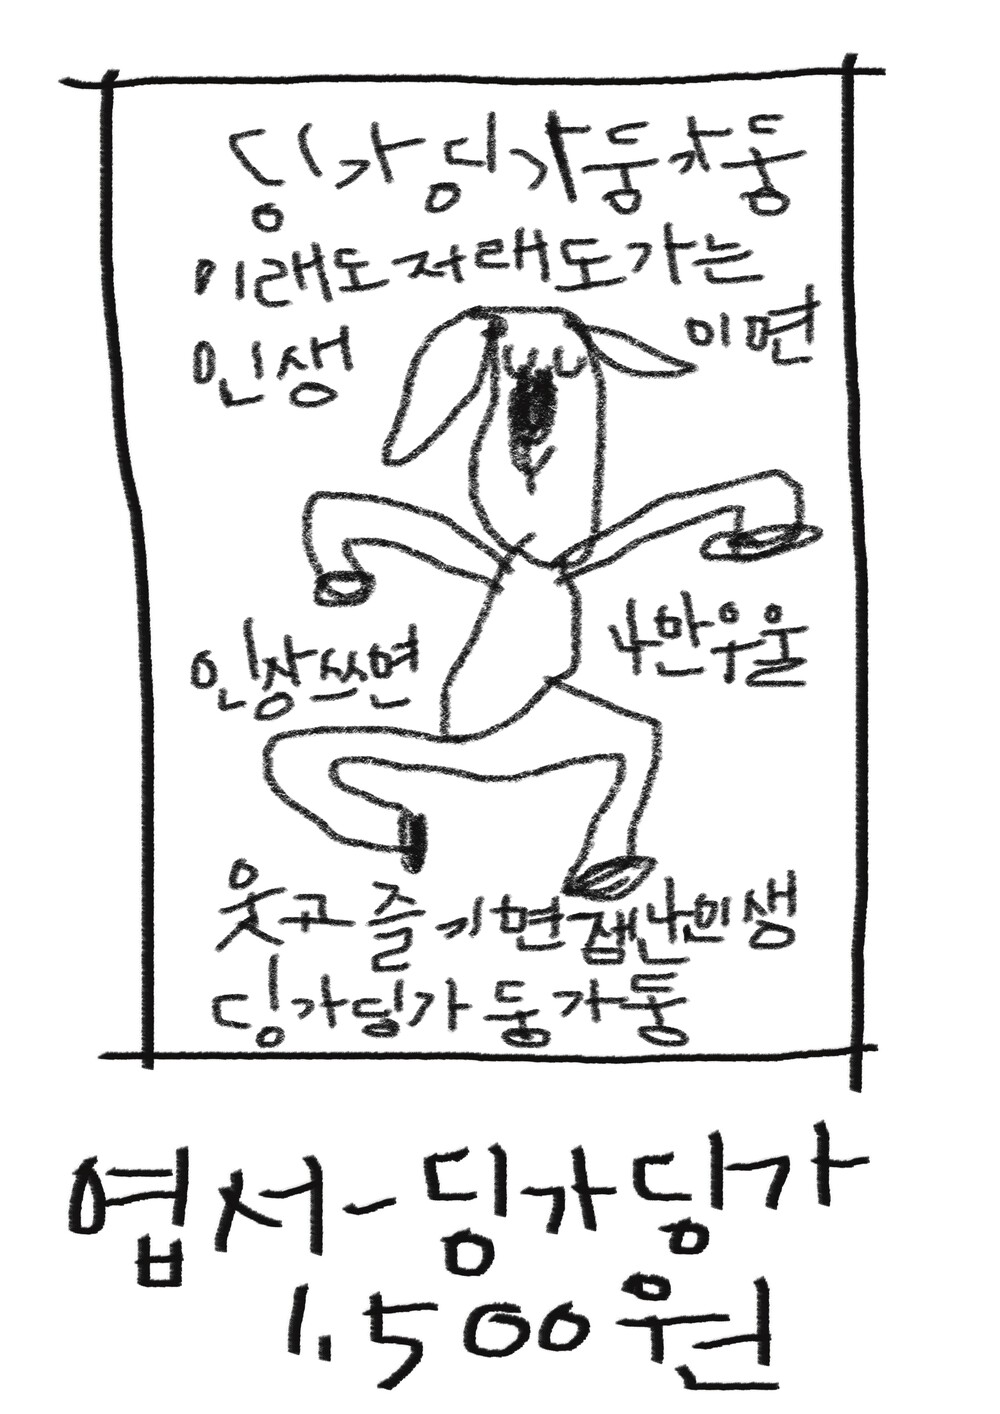 딩가딩가둥가둥
이래도저래도가는
인생 이면
인상쓰면 나만우울
웃고즐기면잼난인생
딩가딩가둥가둥
엽서-딩가딩가
1,500원